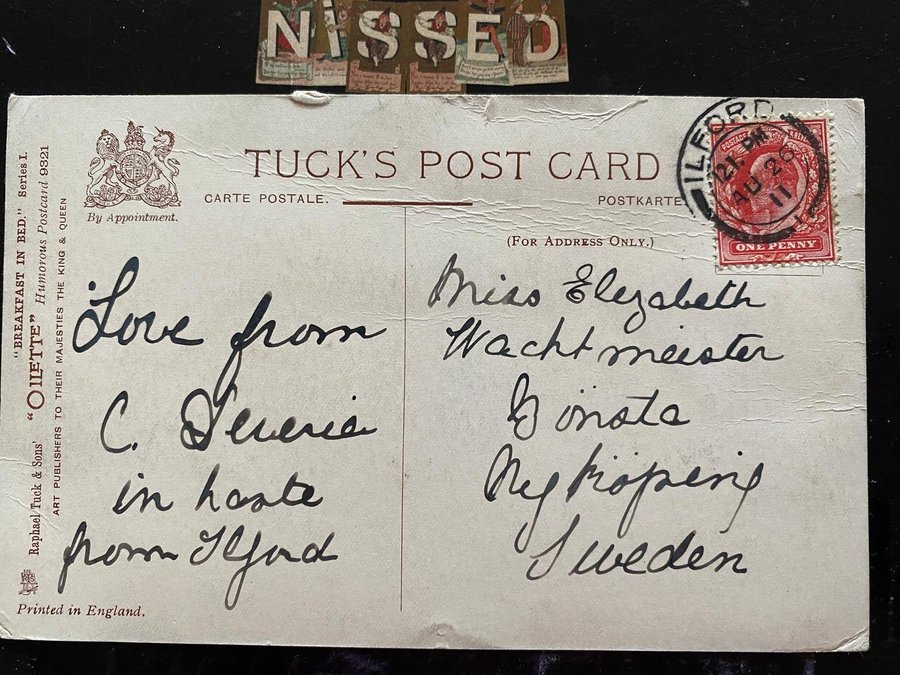 NiSSED
TUCK'S POST CARD
CARTE POSTALE.
POSTKARTE
(FOR ADDRESS ONLY.)
By Appointment.
Raphael Tuck & Sons' "OILETTE" Humorous Postcard 9321
"BREAKFAST IN BED." Series I.
ART PUBLISHERS TO THEIR MAJESTIES THE KING & QUEEN
Printed in England.
ILFORD
12 PM
AU 26
11
ONE PENNY
Love from
C.
in haste
from Ilford
Miss Elizabeth
Wachtmeister
Nyköping
Sweden